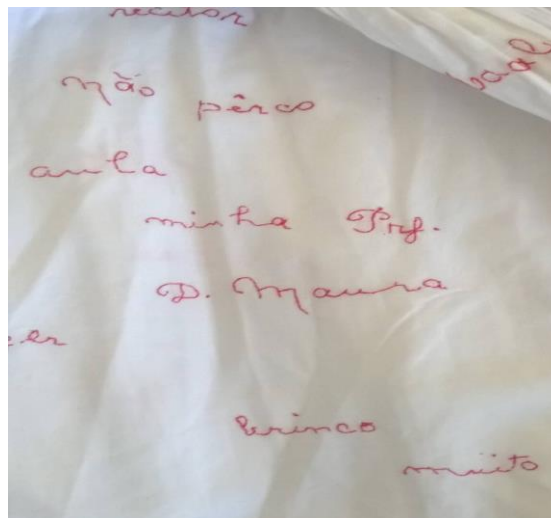 não pêrco
aula
minha Prf.
D. Maura
brinco
muito